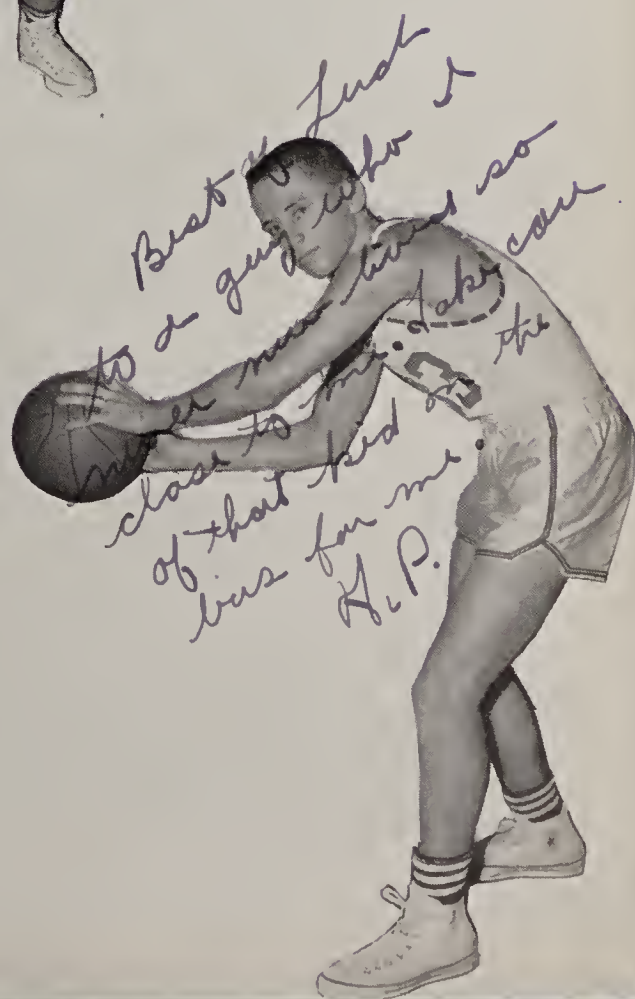 Best of Luck
to a guy who I
never new lived so
close to me. Take care
of that kid on the
bus for me
H.P.